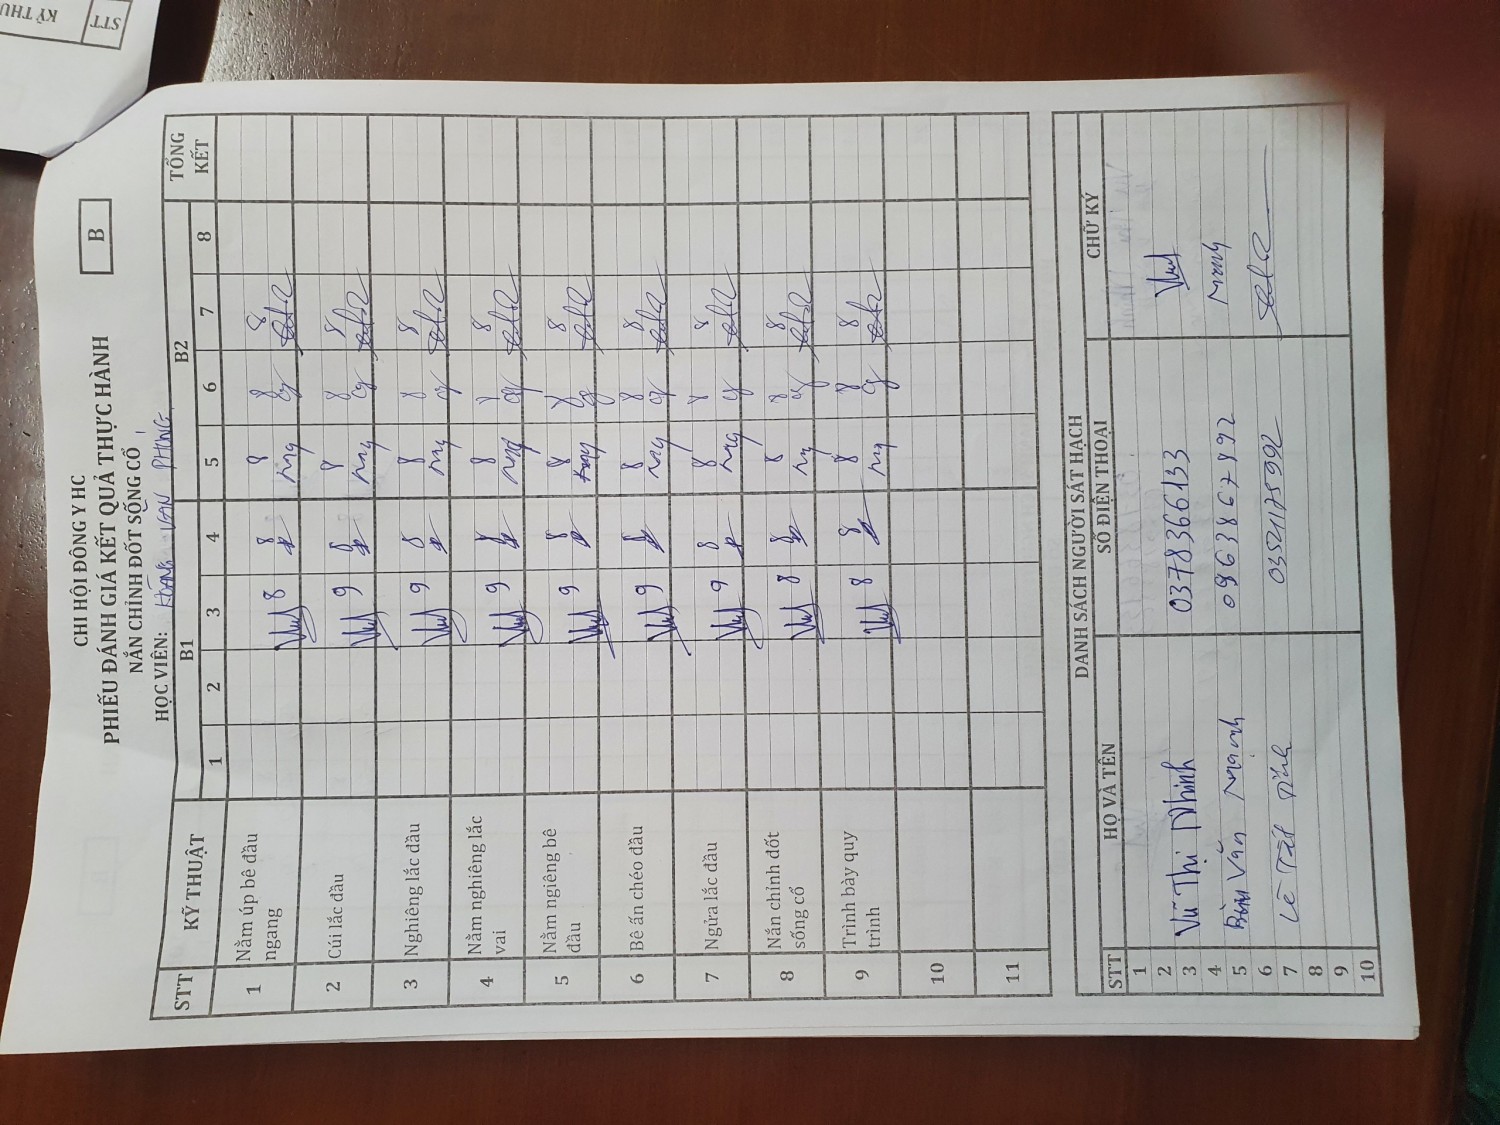 STT KỸ THU
CHI HỘI ĐÔNG Y HC
PHIẾU ĐÁNH GIÁ KẾT QUẢ THỰC HÀNH
B
NẮN CHỈNH ĐỐT SỐNG CỔ
HỌC VIÊN: HOÀNG VĂN PHONG
STT KỸ THUẬT B1 B2 TỔNG KẾT
1 2 3 4 5 6 7 8
1 Nằm úp bê đầu ngang 8 8 8 8 8
2 Cúi lắc đầu 9 8 8 8 8
3 Nghiêng lắc đầu 9 8 8 8 8
4 Nằm nghiêng lắc vai 9 8 8 8 8
5 Nằm ngiêng bê đầu 9 8 8 8 8
6 Bê ấn chéo đầu 9 8 8 8 8
7 Ngửa lắc đầu 9 8 8 8 8
8 Nắn chỉnh đốt sống cổ 8 8 8 8 8
9 Trình bày quy trình 8 8 8 8 8
10
11
DANH SÁCH NGƯỜI SÁT HẠCH
STT HỌ VÀ TÊN SỐ ĐIỆN THOẠI CHỮ KÝ
1
2
3 Vũ Thị Nhinh 0378366133
4
5 Văn Mạnh 0963867892
6
7 Lê Tất
8
9
10